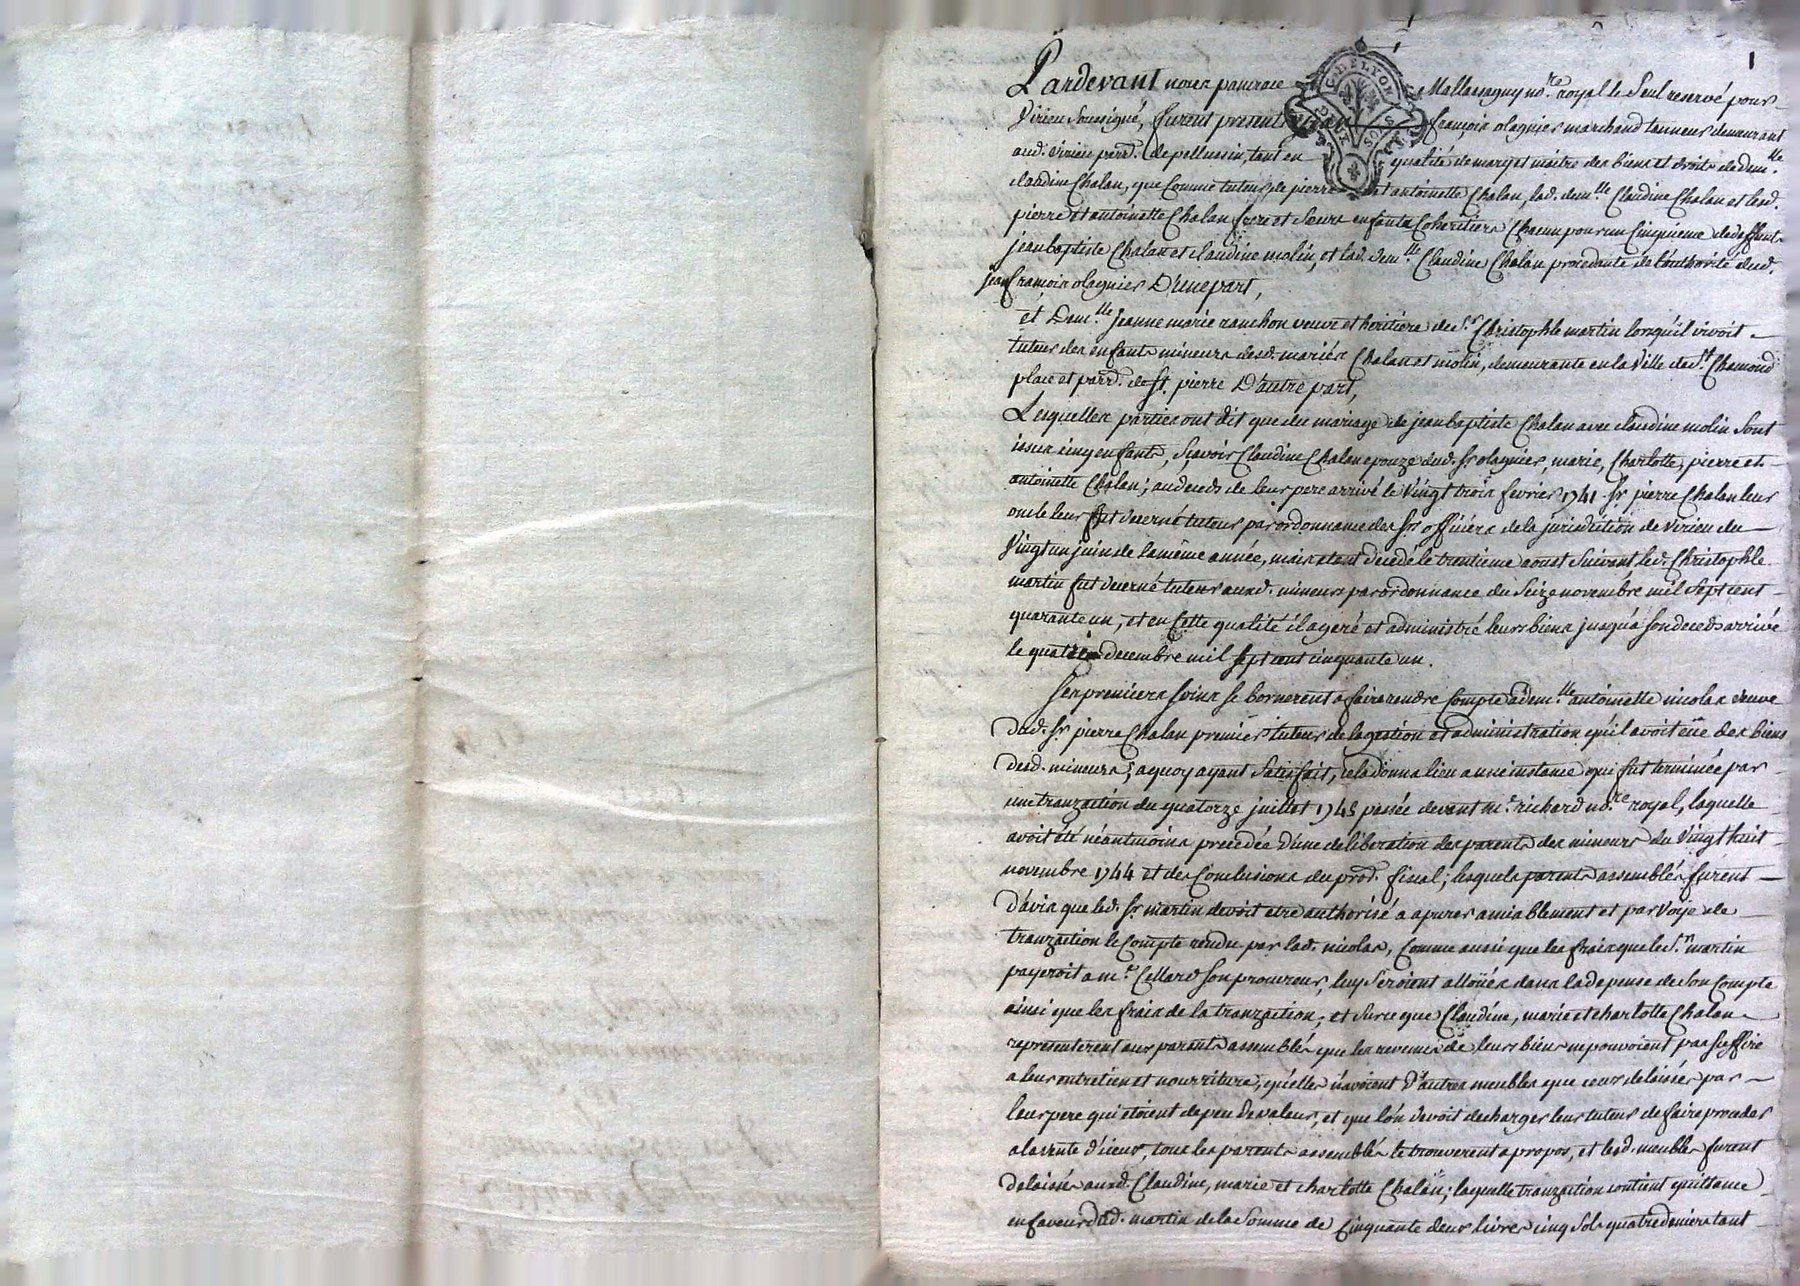 1
Pardevant nous pancrace Mallassagny no.re royal le Seul reservé pour
Virieu Soussigné, furent presents Sr jean françois olagnier marchand tanneur demeurant
aud. Virieu parr. de pellussin, tant en qualité de mary et maitre des biens et droits de dem.lle
claudine Chalan, que Comme tuteur de pierre et antoinette Chalan, lad. dem.lle Claudine Chalan et lesd.
pierre et antoinette Chalan frere et Soeurs enfants Coheritiers Chacun pour un Cinquieme de deffunts
jean baptiste Chalan et claudine molin, et lad. dem.lle Claudine Chalan procedante de l'authorité dud.
jean françois olagnier D'une part,
et Dem.lle Jeanne marie ranchon veuve et heritiere de S.r Christophle martin lorsqu'il vivoit
tuteur des enfants mineurs desd. mariés Chalan et molin, demeurante en la Ville de S.t Chamond
place et parr. de St. pierre D'autre part,
Lesquelles parties ont dit que du mariage de jean baptiste Chalan avec claudine molin Sont
issus cinq enfants, Sçavoir Claudine Chalan epouze dud. Sr olagnier, marie, Charlotte, pierre et
antoinette Chalan; au deceds de leur pere arrivé le Vingt trois fevrier 1741. Sr pierre Chalan leur
oncle leur fut decerné tuteur par ordonnance des Srs officiers de la jurisdiction de Virieu du
Vingt un juin de la même année, mais etant decedé le trentieme aoust Suivant led. Christophle
martin fut decerné tuteur auxd. mineurs par ordonnance du Seize novembre mil Sept cent
quarante un, et en Cette qualité il a geré et administré leurs biens jusqu'a Son deceds arrivé
le decembre mil Sept cent cinquante un.
Ses premiers Soins Se bornerent a faire rendre Compte a dem.lle antoinette nicolas veuve
dud. Sr pierre Chalan premier tuteur de la gestion et administration qu'il avoit eüe des biens
desd. mineurs; a quoy ayant Satisfait, cela donna lieu a une instance qui fut terminée par
une tranzaction du quatorze juillet 1745 passée devant m.e richard no.re royal, laquelle
avoit été néantmoins precedée d'une deliberation des parents des mineurs du Vingt huit
novembre 1744 et des Conclusions du prod. fiscal; lesquels parents assemblés furent
d'avis que led. Sr martin devoit etre authorisé a apurer amiablement et par Voye de
tranzaction le Compte rendu par lad. nicolas, Comme aussi que les frais que le S.r martin
payeroit a m.e Cellard Son procureur, luy Seroient alloüés dans la depense de Son Compte
ainsi que les frais de la tranzaction; et Sur ce que Claudine, marie et charlotte Chalan
representerent aux parents assemblés que les revenus de leurs biens ne pouvoient pas Suffire
a leur entretien et nourriture, qu'elles n'avoient d'autres meubles que ceux delaissés par
leur pere qui etoient de peu de valeur, et que l'on devoit decharger leur tuteur de faire proceder
a la vente d'iceux, tous les parents assemblés le trouverent a propos, et lesd. meubles furent
delaissés auxd. Claudine, marie et charlotte Chalan; laquelle tranzaction contient quittance
en faveur dud. martin de la Somme de Cinquante deux livres cinq Sols quatre deniers tant